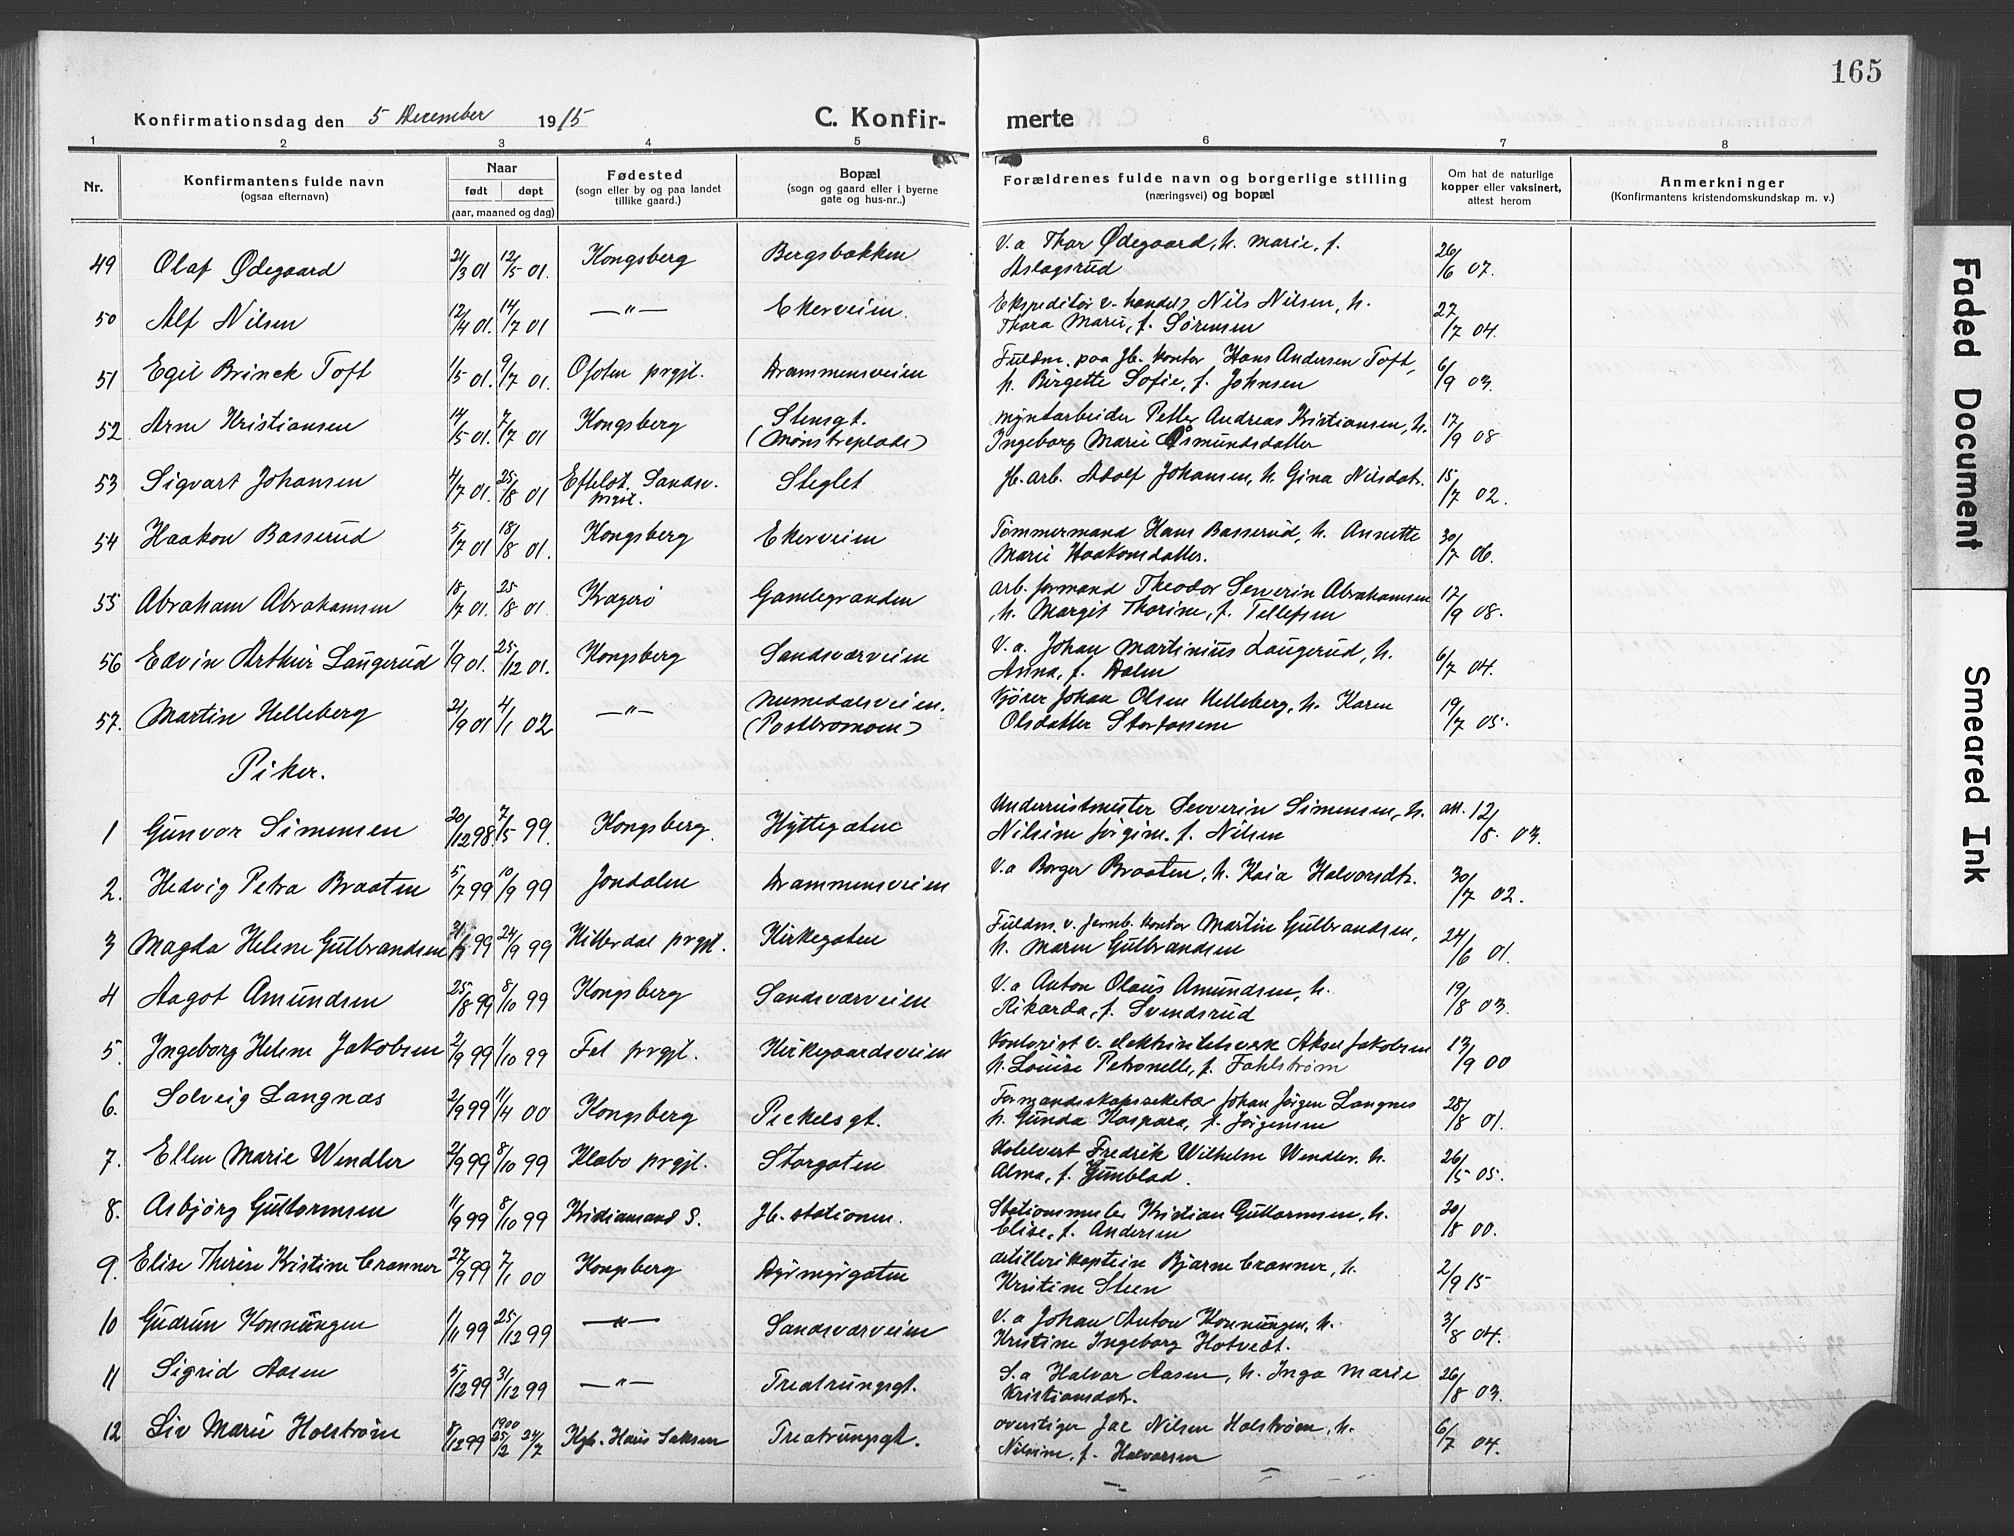 165
Konfirmationsdag den 5 December 1915 C. Konfirmerte
1 2 3 4 5 6 7 8
Nr. Konfirmantens fulde navn (ogsaa efternavn) Naar født døpt (aar, maaned og dag) Fødested (sogn eller by og paa landet tillike gaard.) Bopæl (sogn og gaard eller i byerne gate og hus-nr..) Forældrenes fulde navn og borgerlige stilling (næringsvei) og bopæl Om hat de naturlige kopper eller vaksinert, attest herom Anmerkninger (Konfirmantens kristendomskundskap m. v.)
49 Olaf Ødegaard 21/3 01 12/5 01. Kongsberg Bergsbakken V. a Thor Ødegaard, h. Marie, f. Aslagsrud 26/6 07.
50 Alf Nilsen 12/4 01. 14/7 01 —"— Ekerveien. Ekspeditør v. handel Nils Nilsen, h. Thora Marie, f. Sørensen 27/7 04.
51 Egil Brinck Toft 1/5 01. 9/7 01. Ofoten prgjl. Drammensveien Fuldm. paa Jb. kontor Hans Andersen Toft, h. Birgette Sofie, f. Johnsen 6/9 03.
52 Arne Kristiansen 14/5 01. 7/7 01 Kongsberg Stensgt. (Mønstreplads) Myntarbeider Petter Andreas Kristiansen, h. Ingeborg Marie Åsmundsdatter 17/9 08
53 Sigvart Johansen 4/7 01. 25/8 01 Efteløt Sandsv. prgjl. Steglet Jb. arb. Adolf Johansen, h. Gina Nilsdatr. 15/7 02.
54 Haakon Basserud 5/7 01 18/8 01. Kongsberg Ekerveien Tømmermand Hans Basserud, h. Annette Marie Haakonsdatter. 30/7 06.
55 Abraham Abrahamsen 18/7 01. 25/8 01. Kragerö Gamlegranden Arb. formand Theodor Severin Abrahamsen h. Margit Thorine, f. Tellefsen 17/9 08.
56 Edvin Arthur Laugerud 1/9 01. 25/12 01. Kongsberg Sandsværveien V. a. Johan Martinius Laugerud, h. Anna, f. Dalen 6/7 04.
57. Martin Helleberg 21/9 01 4/1 02 —"— Numedalsveien. (Postbromoen) Kjører Johan Olsen Helleberg, h. Karen Olsdatter Storfossene 19/7 05.
Piker.
1 Gunvor Simensen 20/12 98. 7/5 99. Kongsberg. Hyttegaten Underrustmester Severin Simensen, h. Nilsine Jørgine. f. Nilsen att. 12/8. 03.
2. Hedvig Petra Braaten 5/7 99 10/9 99 Jondalen Drammensveien V. a Borger Braaten, h. Kaia Halvorsdtr. 30/7 02.
3 Magda Helene Gulbrandsen 99 24/9 99 Hitterdal prgjl. Kirkegaten Fuldm. v. Jernb. kontor Martin Gulbrandsen, h. Maren Gulbrandsen 24/6 01.
4 Aagot Amundsen 25/8 99 8/10 99 Kongsberg Sandsværveien V. a Anton Olaus Amundsen, h. Rikarda, f. Svendsrud 19/8 03.
5. Ingeborg Helene Jakobsen 2/9 99 1/10 99 Fet prgjl. Kirkegaardsveien Kontorist v. elektrisitetsverk Aksel Jakobsen h. Louise Petronelle, f. Fahlstrøm 13/9 00
6. Solveig Langnæs 2/9 99 11/4 00 Kongsberg Pickelsgt. Formandskapssekretær Johan Jørgen Langnes h. Gunda Kaspara, f. Jørgensen 28/8 01.
7. Ellen Marie Wendler 2/9 99 8/10 99 Klæbo prgjl. Storgaten Fredrik Wilhelm Wendler. h. Alma, f. Gunblad. 26/5 05.
8. Asbjørg Guttormsen 11/9 99 8/10 99 Kristiansand S. Jb. stationen. Stationsmester Kristian Guttormsen, h. Elise, f. Andersen 20/8 00.
9. Elise Therese Kristine Cranner 27/9 99 7/1 00 Kongsberg Dyrmyrgaten Artillerikaptein Bjarne Cranner, h. Kristine Steen 2/9 15
10 Gudrun Konnungen 1/11 99 25/12 99 —"— Sandsværveien V. a Johan Anton Konnungen, h. Kristine Ingeborg Hotvedt. 3/8 04.
11 Sigrid Aasen 5/12 99 31/12 99 —"— Treatrungsgt. S. a Halvor Aasen, h. Inga Marie Kristiansdatr. 26/8 03.
12 Liv Marie Holstrøm 8/12 99 1900 25/2 24/7 Kgb. Haus Saksen Treatrungsgt. Overstiger Jac Nilsen Holstrøm, h. Nilsine, f. Halvorsen 6/7 04.
Faded Document
Smeared Ink